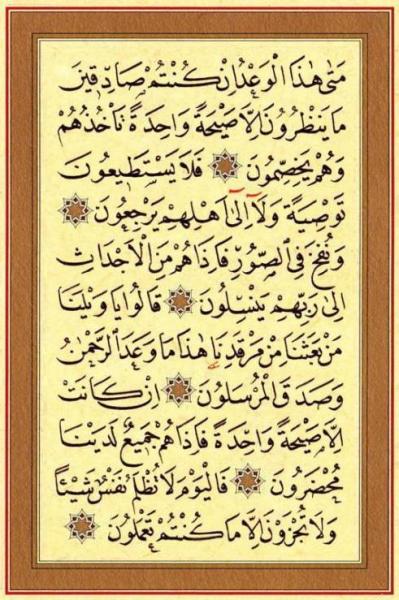 مَتٰى هٰذَا الْوَعْدُ اِنْ كُنْتُمْ صَادِقٖينَ
مَا يَنْظُرُونَ اِلَّا صَيْحَةً وَاحِدَةً تَأْخُذُهُمْ
وَهُمْ يَخِصِّمُونَ ۞ فَلَا يَسْتَطٖيعُونَ
تَوْصِيَةً وَلَٓا اِلٰٓى اَهْلِهِمْ يَرْجِعُونَ ۞
وَنُفِخَ فِى الصُّورِ فَاِذَا هُمْ مِنَ الْاَجْدَاثِ
اِلٰى رَبِّهِمْ يَنْسِلُونَ ۞ قَالُوا يَا وَيْلَنَا
مَنْ بَعَثَنَا مِنْ مَرْقَدِنَا هٰذَا مَا وَعَدَ الرَّحْمٰنُ
وَصَدَقَ الْمُرْسَلُونَ ۞ اِنْ كَانَتْ
اِلَّا صَيْحَةً وَاحِدَةً فَاِذَا هُمْ جَمٖيعٌ لَدَيْنَا
مُحْضَرُونَ ۞ فَالْيَوْمَ لَا تُظْلَمُ نَفْسٌ شَيْئًا
وَلَا تُجْزَوْنَ اِلَّا مَا كُنْتُمْ تَعْمَلُونَ ۞